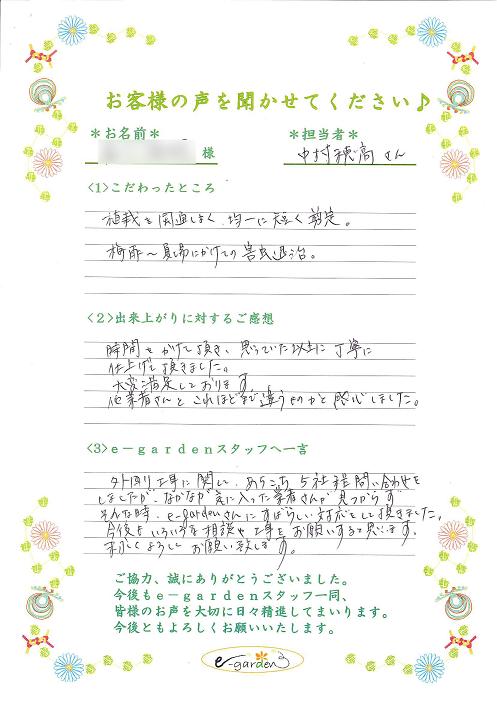 お客様の声を聞かせてください♪
＊お名前＊
＊担当者＊
様
中村穂高さん
<1>こだわったところ
植栽を関通しよく、均一に短く剪定。
〜夏場にかけての害虫退治。
<2>出来上がりに対するご感想
時間をかけて頂き、思っていた以上に丁寧に
仕上げて頂きました。
大変満足しております。
他業者さんとこれほどまで違うものかと感心しました。
<3>e－gardenスタッフへ一言
外回り工事に関し、あちこち5社程問い合わせを
しましたが、なかなか気に入った業者さんが見つからず
そんな時、e-gardenさんにすばらしい対応をして頂きました。
今後もいろいろな相談や工事をお願いすると思います。
末永くよろしくお願い致します。
ご協力、誠にありがとうございました。
今後もe－gardenスタッフ一同、
皆様のお声を大切に日々精進してまいります。
今後ともよろしくお願いいたします。
e-garden